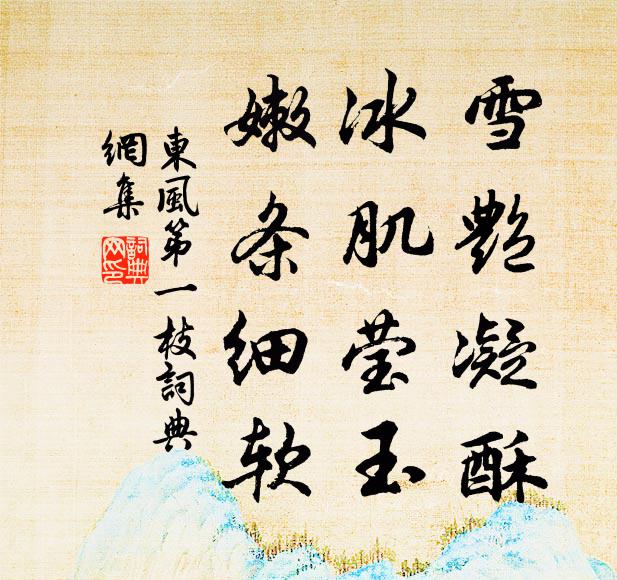 雪艷凝酥
冰肌莹玉
嫩条细软
東風第一枝詞典
網集
詞典網印